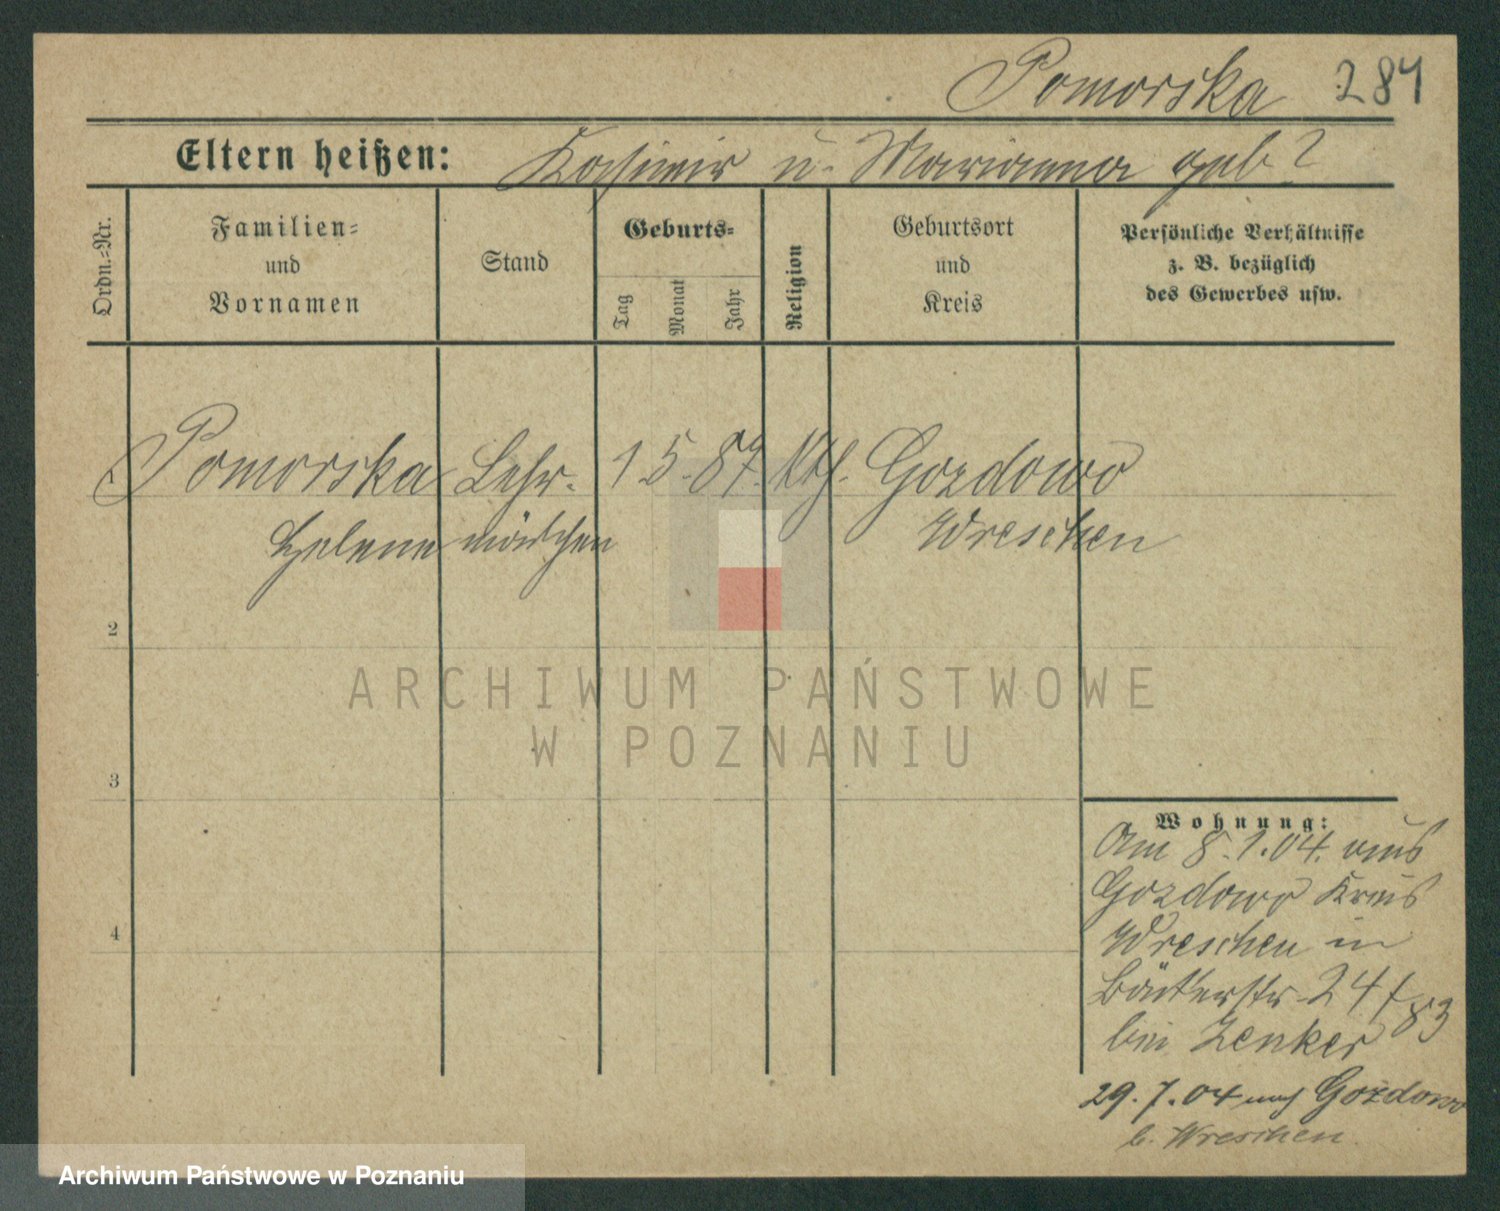 Pomorska 284
Eltern heißen: Kasimir u. Marianna geb?
Ordn.=Nr.
Familien=
und
Vornamen
Stand
Geburts=
Tag
Monat
Jahr
Religion
Geburtsort
und
Kreis
Persönliche Verhältnisse
z. B. bezüglich
des Gewerbes usw.
Pomorska Lehr- 1 5. 87. Kth. Gozdowo
Helene mädchen Wreschen
2
3
4
Wohnung:
Am 8.1.04. aus
Gozdowo Kreis
Wreschen in
24/83
bei Zenker
29.7.04 nach Gozdowo
b. Wreschen.
ARCHIWUM PAŃSTWOWE
W POZNANIU
Archiwum Państwowe w Poznaniu